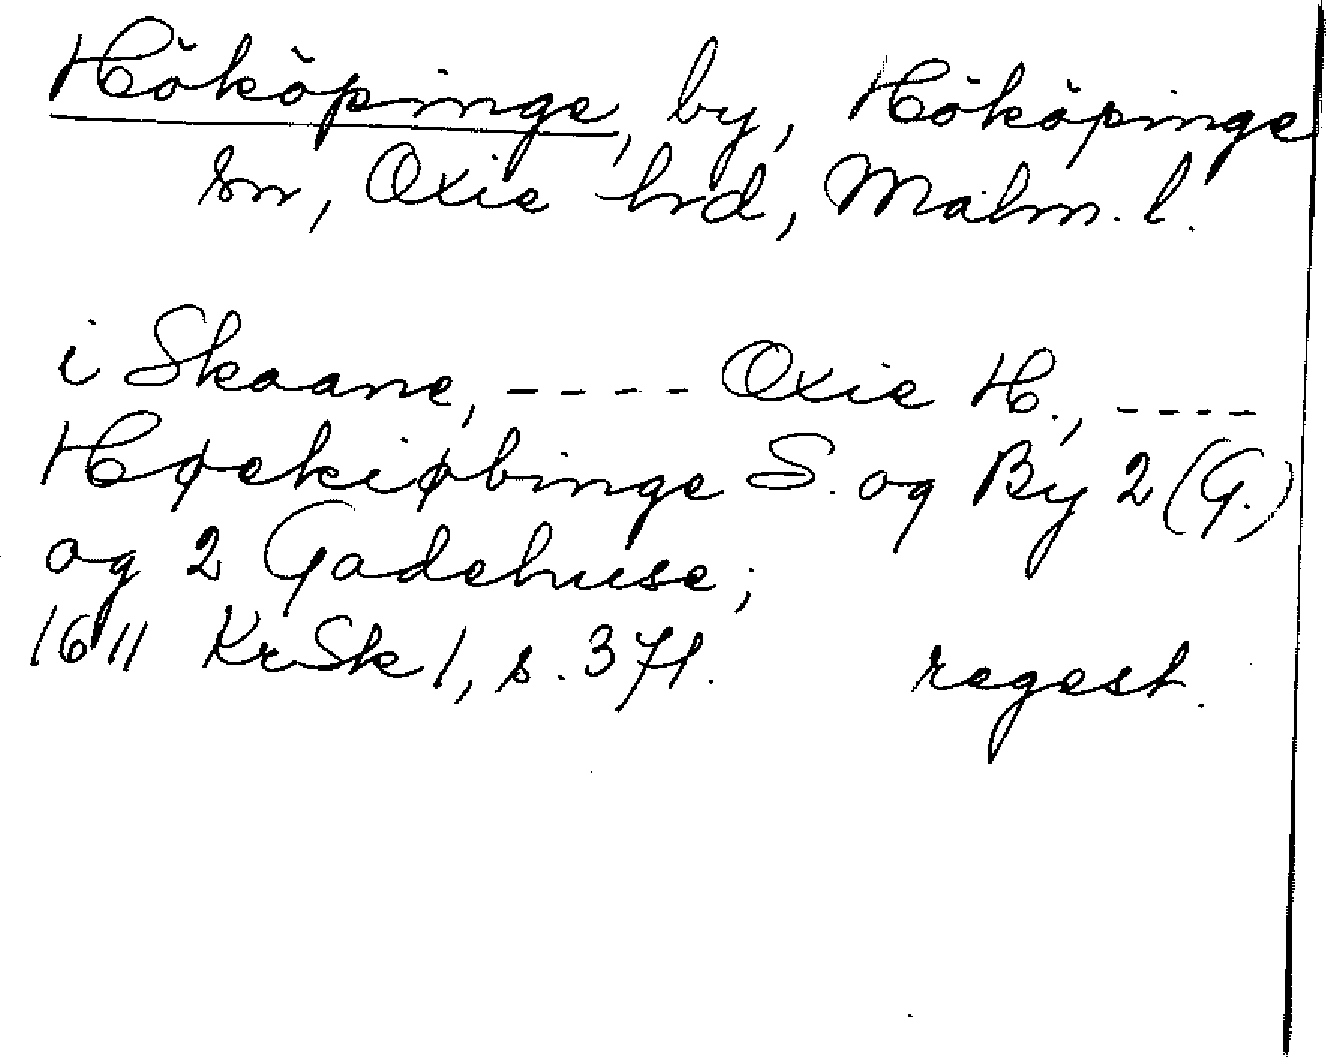 Hököpinge, by, Hököpinge
sn, Oxie hrd, Malm. l.
i Skaane, ---- Oxie H., ----
Høekiøbinge S. og By 2 (G.)
og 2 Gadehuse;
1611 KrSk 1, s. 371. regest.